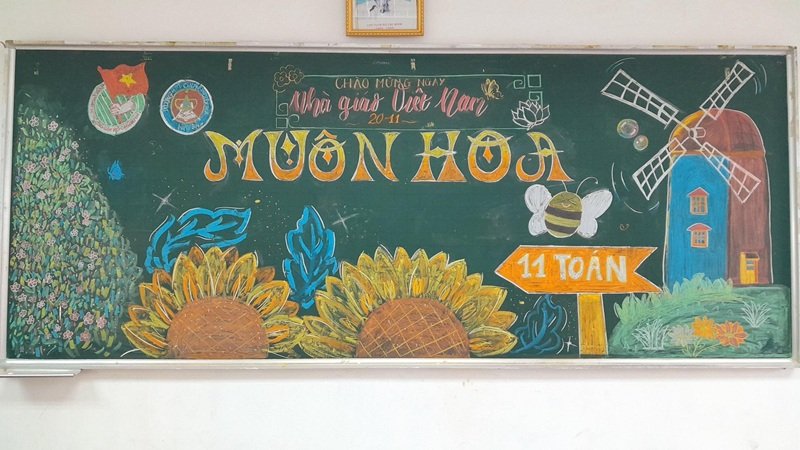 CHÀO MỪNG NGÀY
Nhà giáo Việt Nam
20-11
MUÔN HOA
11 TOÁN